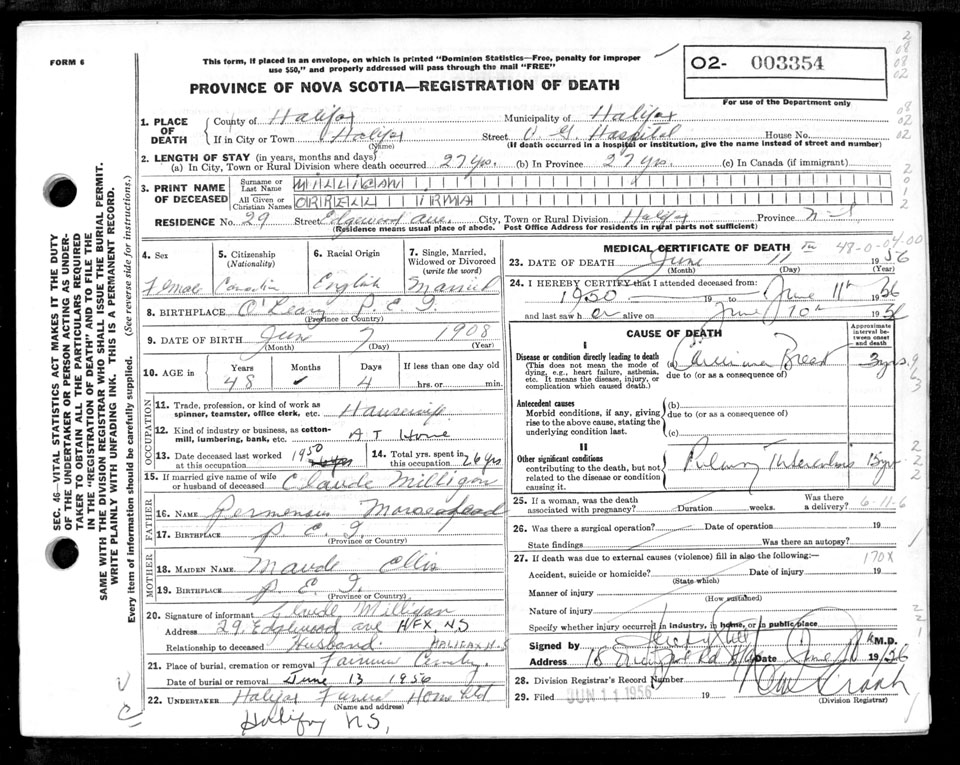 FORM 6
This form, if placed in an envelope, on which is printed "Dominion Statistics—Free, penalty for improper
use $50," and properly addressed will pass through the mail "FREE"
02- 003354
For use of the Department only
PROVINCE OF NOVA SCOTIA—REGISTRATION OF DEATH
1. PLACE OF DEATH
County of Halifax Municipality of Halifax
If in City or Town Halifax Street V. G. Hospital House No.
(Name) (If death occurred in a hospital or institution, give the name instead of street and number)
2. LENGTH OF STAY (in years, months and days)
(a) In City, Town or Rural Division where death occurred 27 yrs. (b) In Province 27 yrs. (c) In Canada (if immigrant)
3. PRINT NAME OF DECEASED
Surname or Last Name MILLIGAN
All Given or Christian Names ORRELL IRMA
RESIDENCE No. 29 Street Edgewood Ave. City, Town or Rural Division Halifax Province N S
(Residence means usual place of abode. Post Office Address for residents in rural parts not sufficient)
4. Sex Female
5. Citizenship (Nationality) Canadian
6. Racial Origin English
7. Single, Married, Widowed or Divorced (write the word) Married
8. BIRTHPLACE O'Leary P.E.I.
(Province or Country)
9. DATE OF BIRTH Jun 7 1908
(Month) (Day) (Year)
10. AGE in Years 48 Months ✓ Days 4 If less than one day old hrs. or min.
OCCUPATION
11. Trade, profession or kind of work as spinner, teamster, office clerk, etc. Housewife
12. Kind of industry or business, as cotton-mill, lumbering, bank, etc. AT Home
13. Date deceased last worked at this occupation 1950
14. Total yrs. spent in this occupation 26 yrs
15. If married give name of wife or husband of deceased Claude Milligan
FATHER
16. NAME
17. BIRTHPLACE P.E.I.
(Province or Country)
MOTHER
18. MAIDEN NAME Maude Ellis
19. BIRTHPLACE P.E.I.
(Province or Country)
20. Signature of informant Claude Milligan
Address 29 Edgewood ave HFX NS
Relationship to deceased Husband. HALIFAX N.S
21. Place of burial, cremation or removal Fairview
Date of burial or removal June 13 1956
22. UNDERTAKER Halifax Funeral Home Ltd
(Name and address)
Halifax N.S,
MEDICAL CERTIFICATE OF DEATH
48-0-04-00
23. DATE OF DEATH June 11 th 1956
(Month) (Day) (Year)
24. I HEREBY CERTIFY that I attended deceased from:
1950 19 to June 11th 1956
and last saw h er alive on June 10th 1956
CAUSE OF DEATH
Approximate interval between onset and death
I
Disease or condition directly leading to death
(This does not mean the mode of dying, e.g., heart failure, asthenia, etc. It means the disease, injury, or complication which caused death.)
(a) Carcinoma Breast 3 yrs.
due to (or as a consequence of)
Antecedent causes
Morbid conditions, if any, giving rise to the above cause, stating the underlying condition last.
(b)
due to (or as a consequence of)
(c)
II
Other significant conditions contributing to the death, but not related to the disease or condition causing it.
Tuberculosis 15 yrs
25. If a woman, was the death associated with pregnancy? Duration weeks. Was there a delivery?
6-11-6
26. Was there a surgical operation? Date of operation 19
State findings Was there an autopsy?
27. If death was due to external causes (violence) fill in also the following:—
170X
Accident, suicide or homicide? Date of injury 19
(State which)
Manner of injury
(How sustained)
Nature of injury
Specify whether injury occurred in industry, in home, or in public place
Signed by M.D.
Address 18 Rd Date June 19 56
28. Division Registrar's Record Number
29. Filed JUN 11 1956 19
(Division Registrar)
SEC. 46—VITAL STATISTICS ACT MAKES IT THE DUTY
OF THE UNDERTAKER OR PERSON ACTING AS UNDER-
TAKER TO OBTAIN ALL THE PARTICULARS REQUIRED
IN THE "REGISTRATION OF DEATH" AND TO FILE THE
SAME WITH THE DIVISION REGISTRAR WHO SHALL ISSUE THE BURIAL PERMIT.
WRITE PLAINLY WITH UNFADING INK. THIS IS A PERMANENT RECORD.
Every item of information should be carefully supplied. (See reverse side for instructions.)